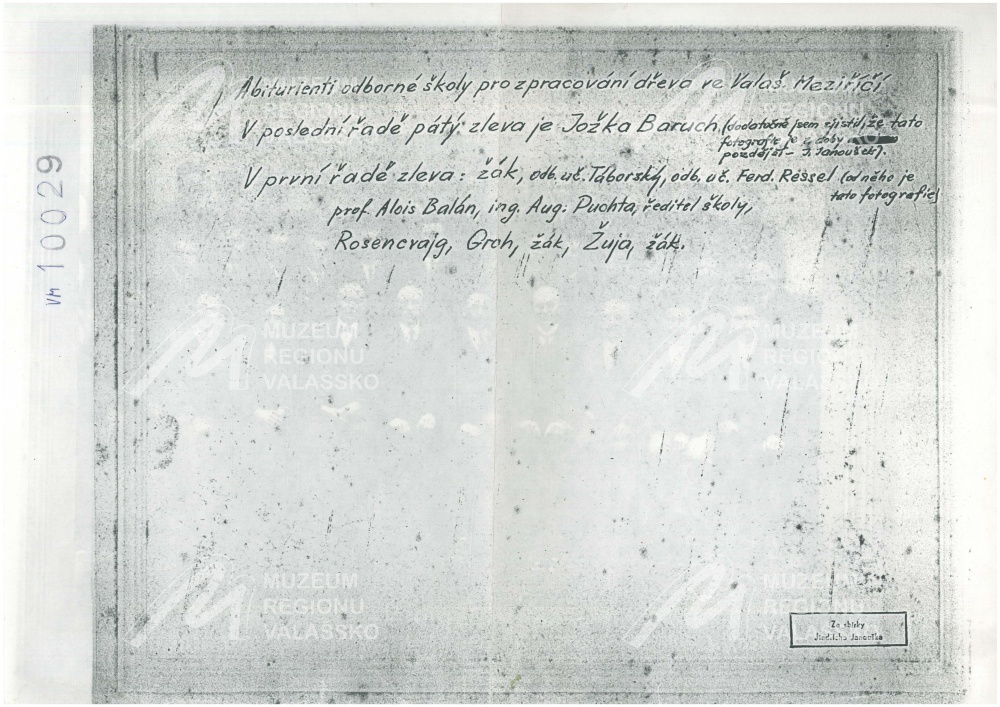 Abiturienti odborné školy pro zpracování dřeva ve Valaš. Meziříčí
V poslední řadě pátý zleva je Jožka Baruch (dodatečně jsem zjistil, že tato
fotografie je z doby
pozdější - J. Janoušek).
V první řadě zleva: žák, odb. uč. Táborský, odb. uč. Ferd. Réssel (od něho je
tato fotografie)
prof. Alois Balán, ing. Aug. Puchta, ředitel školy,
Rosencvajg, Groh, žák, Žuja, žák.
VM 10029
MUZEUM
REGIONU
VALAŠSKO
MUZEUM
REGIONU
VALAŠSKO
MUZEUM
REGIONU
VALAŠSKO
MUZEUM
REGIONU
VALAŠSKO
MUZEUM
REGIONU
VALAŠSKO
MUZEUM
REGIONU
VALAŠSKO
Ze sbírky
Jindřicha Janouška